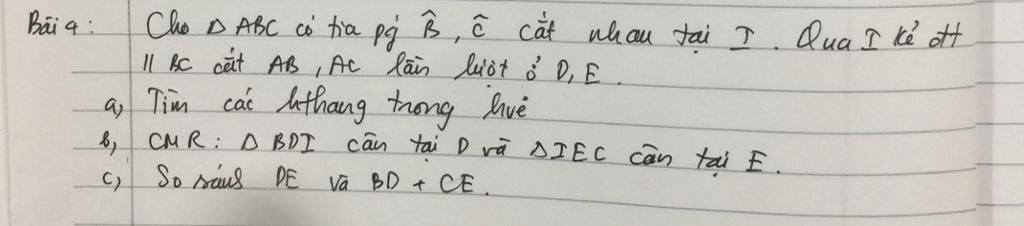 Bài 4: Cho Δ ABC có tia pg B̂, Ĉ cắt nhau tại I. Qua I kẻ đt
// BC cắt AB, AC lần lượt ở D, E.
a, Tìm các hthang trong hvẽ
b, CMR: Δ BDI cân tại D và Δ IEC cân tại E.
c, So sánh DE và BD + CE.